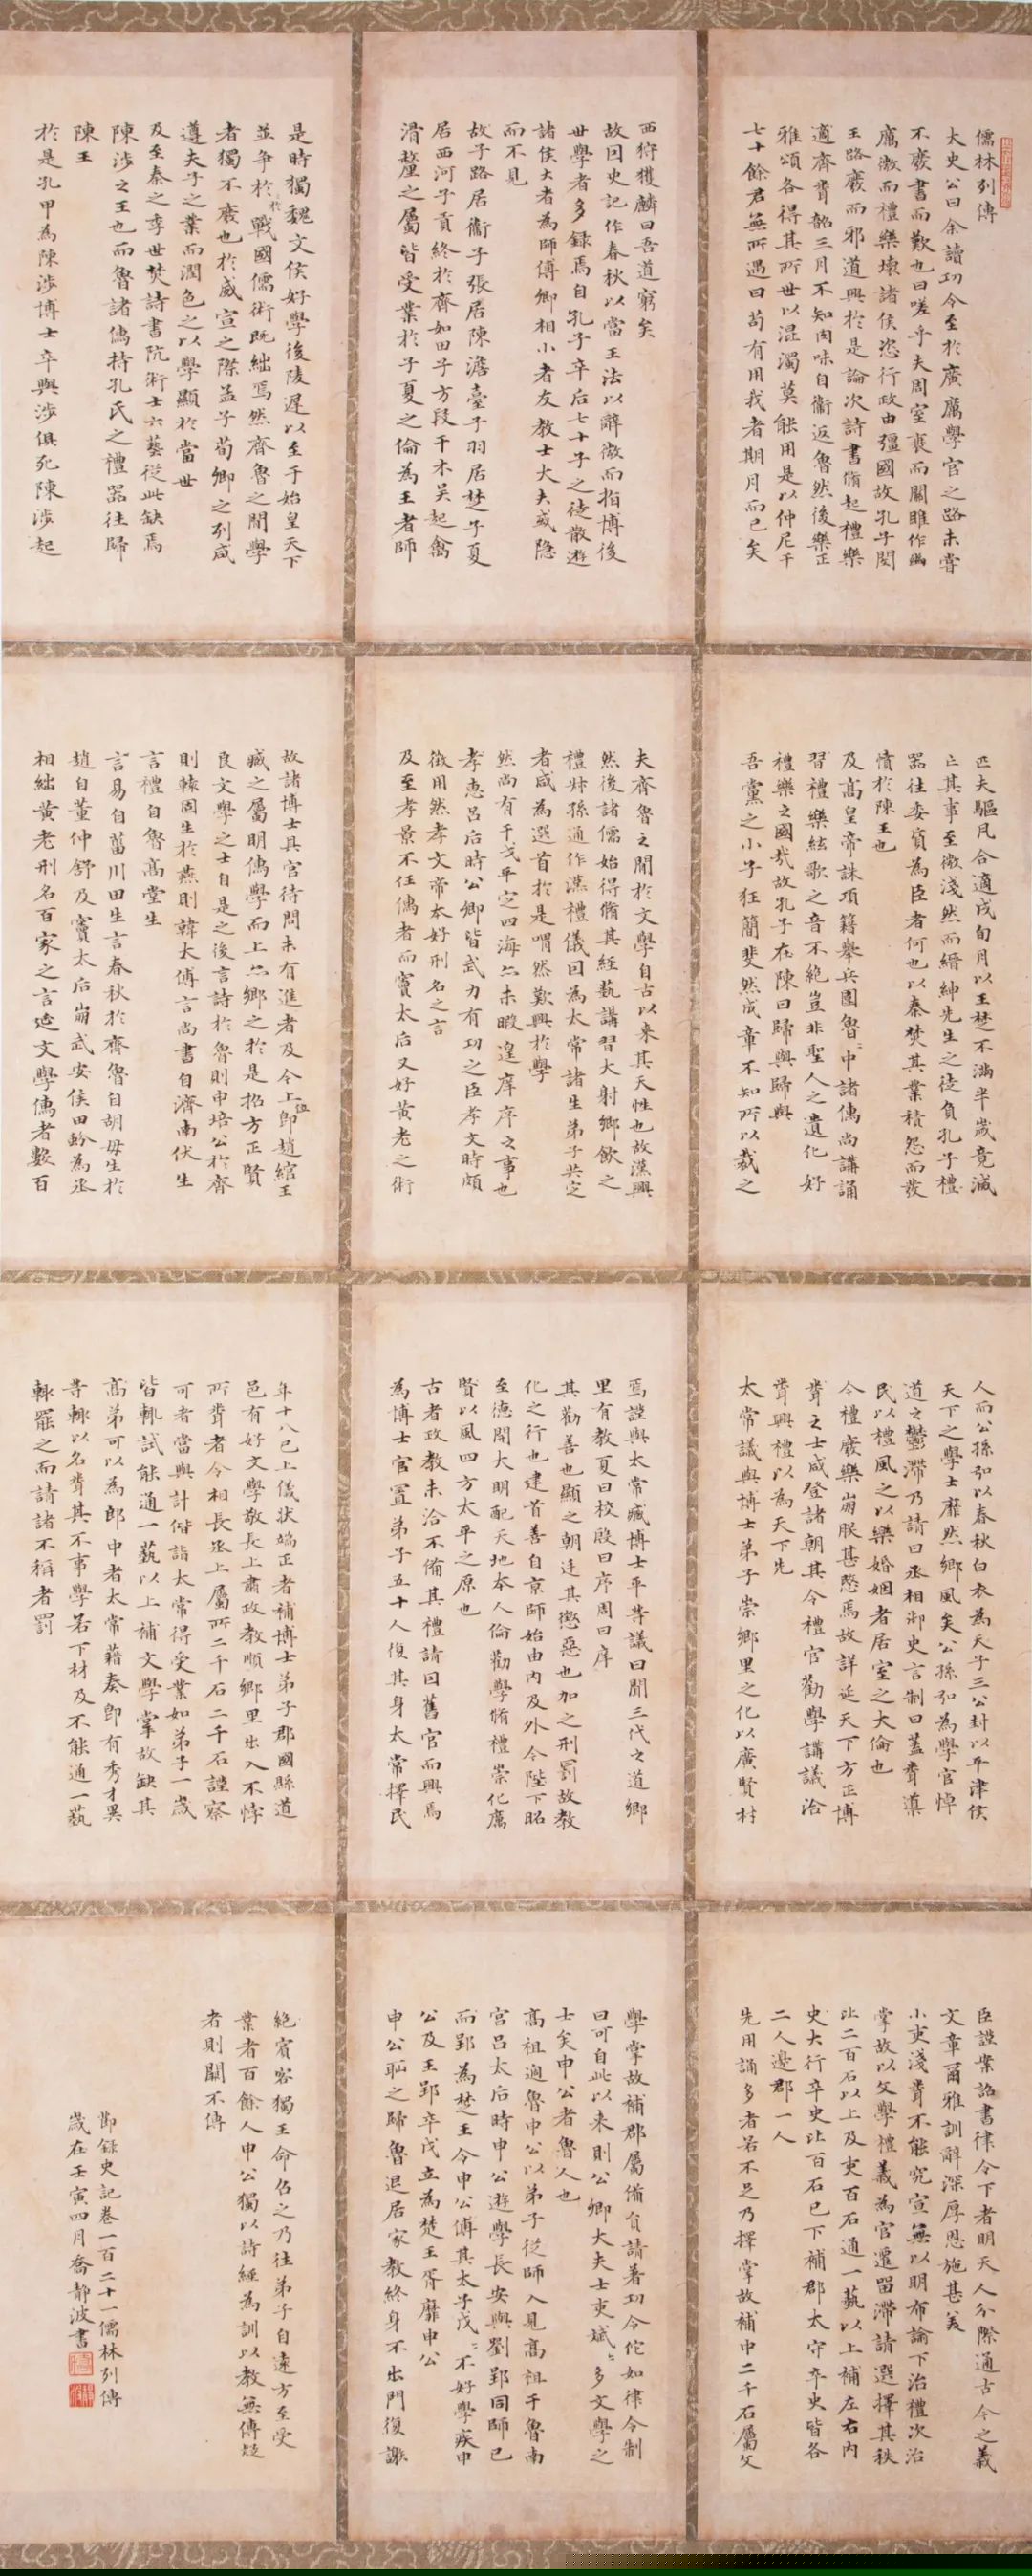 儒林列傳
太史公曰余讀功令至於廣厲學官之路未嘗
不廢書而歎也曰嗟乎夫周室衰而關雎作幽
厲微而禮樂壞諸侯恣行政由彊國故孔子閔
王路廢而邪道興於是論次詩書脩起禮樂
適齊聞韶三月不知肉味自衞返魯然後樂正
雅頌各得其所世以混濁莫能用是以仲尼干
七十餘君無所遇曰苟有用我者期月而已矣
西狩獲麟曰吾道窮矣
故因史記作春秋以當王法以辭微而指博後
世學者多錄焉自孔子卒后七十子之徒散遊
諸侯大者為師傅卿相小者友教士大夫或隐
而不見
故子路居衞子張居陳澹臺子羽居楚子夏
居西河子貢終於齊如田子方段干木吴起禽
滑釐之屬皆受業於子夏之倫為王者師
是時獨魏文侯好學後陵遲以至于始皇天下
並争於戰國儒術既絀焉然齊魯之閒學
者獨不廢也於威宣之際孟子荀卿之列咸
遵夫子之業而潤色之以學顯於當世
及至秦之季世焚詩書阬術士六藝從此缺焉
陳涉之王也而魯諸儒持孔氏之禮器往歸
陳王
於是孔甲為陳涉博士卒與涉俱死陳涉起
匹夫驅凡合適戍旬月以王楚不滿半歲竟滅
亡其事至微淺然而縉紳先生之徒負孔子禮
器往委質為臣者何也以秦焚其業積怨而發
憤於陳王也
及高皇帝誅項籍舉兵圍魯〻中諸儒尚講誦
習禮樂絃歌之音不絶豈非聖人之遺化好
禮樂之國哉故孔子在陳曰歸與歸與
吾黨之小子狂簡斐然成章不知所以裁之
夫齊魯之閒於文學自古以来其天性也故漢興
然後諸儒始得脩其經藝講習大射鄉飲之
禮叔孫通作漢禮儀因為太常諸生弟子共定
者咸為選首於是喟然歎興於學
然尚有干戈平定四海亦未暇遑庠序之事也
孝惠吕后時公卿皆武力有功之臣孝文時頗
徵用然孝文帝本好刑名之言
及至孝景不任儒者而竇太后又好黄老之術
故諸博士具官待問未有進者及今上即位趙綰王
臧之屬明儒學而上亦鄉之於是招方正賢
良文學之士自是之後言詩於魯則申培公於齊
則轅固生於燕則韓太傅言尚書自濟南伏生
言禮自魯高堂生
言易自菑川田生言春秋於齊魯自胡毋生於
趙自董仲舒及竇太后崩武安侯田蚡為丞
相絀黄老刑名百家之言延文學儒者數百
人而公孫弘以春秋白衣為天子三公封以平津侯
天下之學士靡然鄉風矣公孫弘為學官悼
道之鬱滯乃請曰丞相御史言制曰蓋聞導
民以禮風之以樂婚姻者居室之大倫也
今禮廢樂崩朕甚愍焉故詳延天下方正博
聞之士咸登諸朝其令禮官勸學講議洽
聞興禮以為天下先
太常議與博士弟子崇鄉里之化以廣賢材
焉謹與太常臧博士平等議曰聞三代之道鄉
里有教夏曰校殷曰序周曰庠
其勸善也顯之朝廷其懲惡也加之刑罰故教
化之行也建首善自京師始由内及外今陛下昭
至德開大明配天地本人倫勸學脩禮崇化厲
賢以風四方太平之原也
古者政教未洽不備其禮請因舊官而興焉
為博士官置弟子五十人復其身太常擇民
年十八已上儀状端正者補博士弟子郡國縣道
邑有好文學敬長上肅政教順鄉里出入不悖
所聞者令相長丞上屬所二千石二千石謹察
可者當與計偕詣太常得受業如弟子一歲
皆輒試能通一藝以上補文學掌故缺其
高弟可以為郎中者太常籍奏即有秀才異
等輒以名聞其不事學若下材及不能通一藝
輒罷之而請諸不稱者罰
臣謹案詔書律令下者明天人分際通古今之義
文章爾雅訓辭深厚恩施甚美
小吏淺聞不能究宣無以明布諭下治禮次治
掌故以文學禮義為官遷留滯請選擇其秩
比二百石以上及吏百石通一藝以上補左右内
史大行卒史比百石已下補郡太守卒史皆各
二人邊郡一人
先用誦多者若不足乃擇掌故補中二千石屬文
學掌故補郡屬備員請著功令佗如律令制
曰可自此以来則公卿大夫士吏斌〻多文學之
士矣申公者魯人也
高祖過魯申公以弟子從師入見高祖于魯南
宮吕太后時申公遊學長安與劉郢同師已
而郢為楚王令申公傅其太子戊〻不好學疾申
公及王郢卒戊立為楚王胥靡申公
申公恥之歸魯退居家教終身不出門復謝
絶賓客獨王命召之乃往弟子自遠方至受
業者百餘人申公獨以詩經為訓以教無傳疑
者則闕不傳
節錄史記卷一百二十一儒林列傳
歲在壬寅四月喬静波書